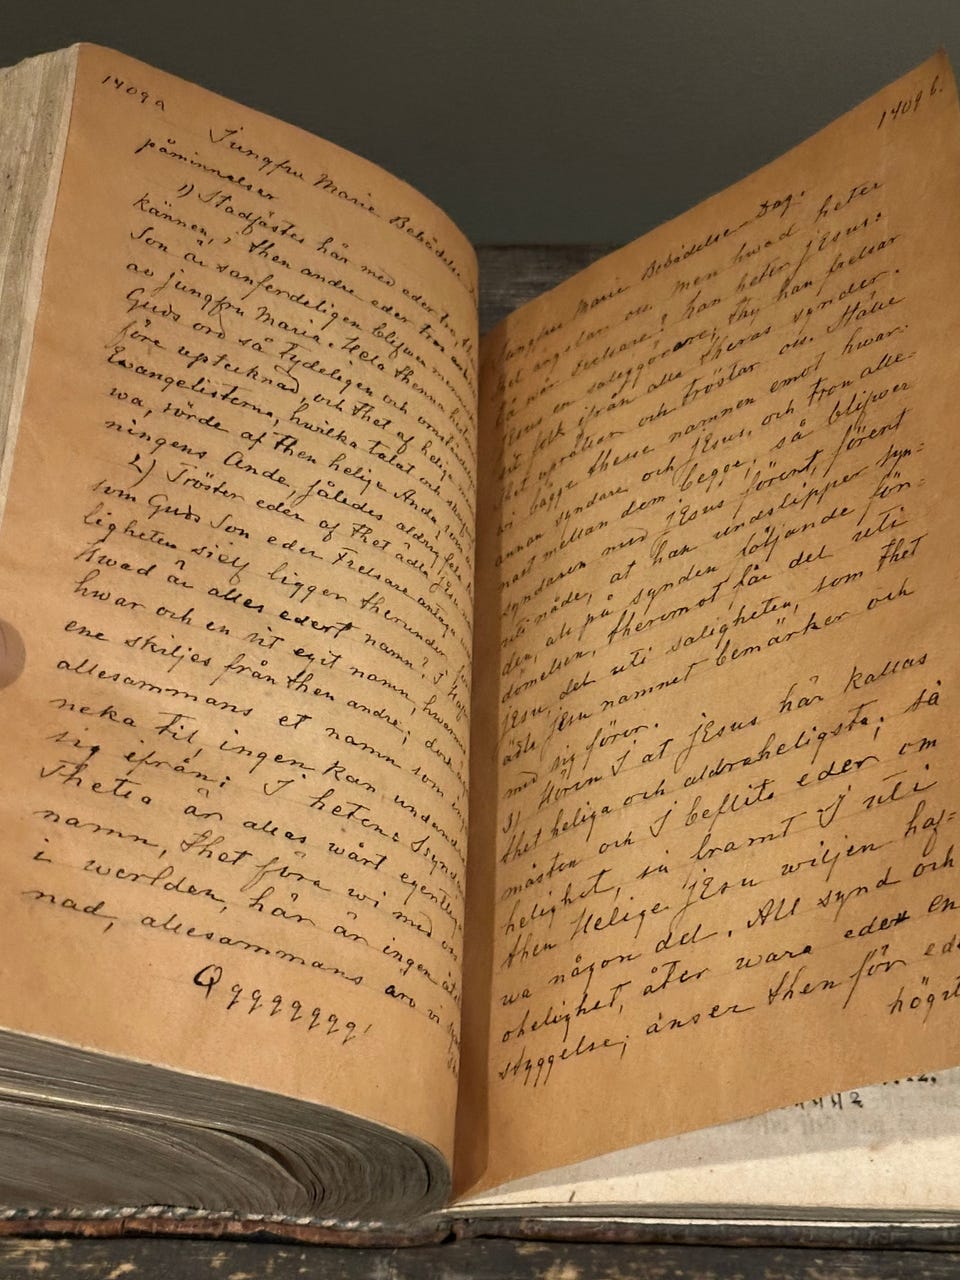 1409a
Jungfru Marie Bebådelse
påminnelser
1) Stadfästes här med eder tro,
kännen, then andre eder tros
Son är sanferdeligen blifwen
av jungfru Maria. Hela thenna
Guds ord så tydeligen och
före uptecknad, och thet af helige
Ewangelisterna, hwilka talat och
wa, rörde af then helige Anda,
ningens Ande, således aldrig
2) Tröster eder af thet ädla
som Guds Son eder Frelsare antaga
ligheten sielf ligger therunder
Hwad är alles edert namn?
hwar och en sit egit namn, hwarmed
ene skiljes från then andre; dock
allesammans et namn som
neka til, ingen kan undandra
sig ifrån: I heten:
Thetta är alles wårt egentliga
namn, thet föra wi med oss
i werlden, här är ingen åtskil
nad, allesammans äro wi
Qqqqqqqq!
1409 b.
Jungfru Marie Bebådelse Dag.
thet angelar oss. Men hwad heter
då wår Frelsare? han heter JEsus:
JEsus en saliggörare; thy han frelsar
sit folk ifrån alla theras synder.
Thet uprättar och tröstar oss. Ställe
wi bägge thesse namnen emot hwar-
annan syndare och JEsus, och tron alle-
nast mellan dem begge, så blifwer
syndaren med JEsus förent, förent
uti nåde, at han undslipper syn-
den, als på synden följande för-
dömelsen, theremot får del uti
JEsu, del uti saligheten, som thet
ädla JEsu namnet bemärker och
med sig förer.
3) Hören I at JEsus här kallas
thet heliga och aldraheligsta; så
måsten och I beflita eder om
helighet, så framt I uti
then Helige JEsu wiljen haf-
wa någon del. All synd och
ohelighet, åter wara eder en
styggelse; änser then för ede
högst